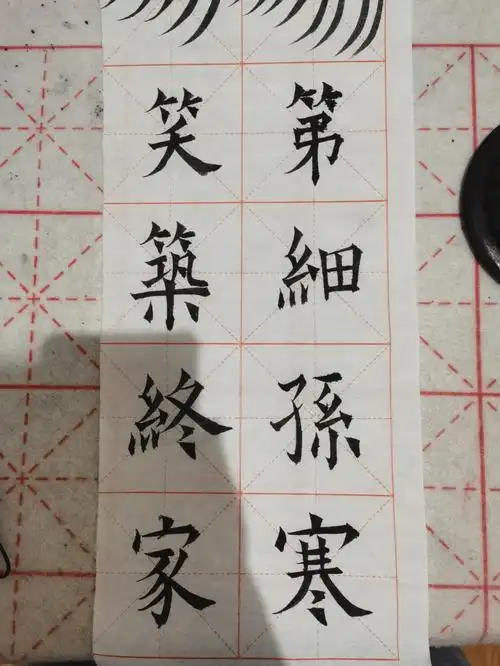 第細孫寒
笑築終家